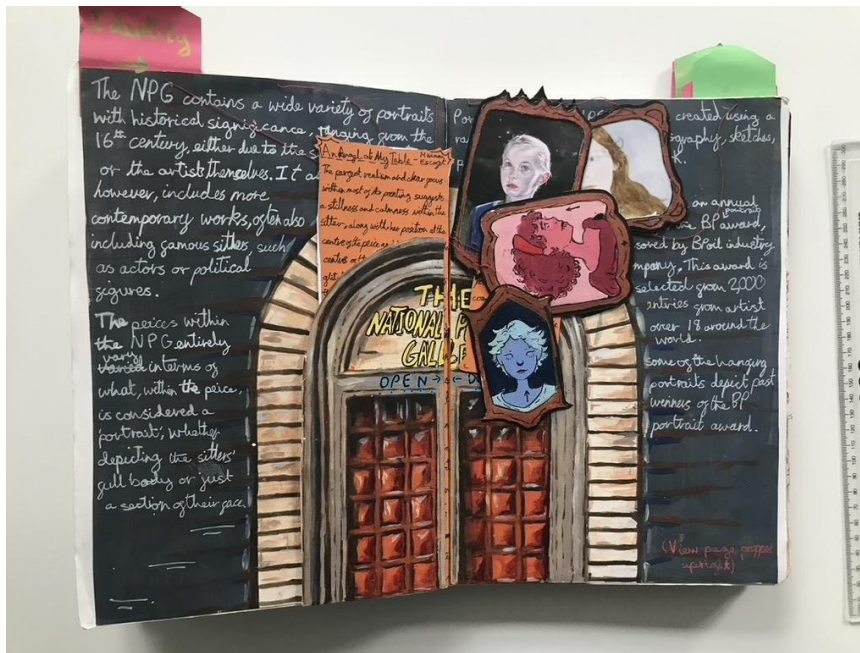 Identity
The NPG contains a wide variety of portraits
with historical significance, ranging from the
16th century, either due to the s
or the artist themselves. It a
however, includes more
contemporary works, often also
including famous sitters, such
as actors or political
figures.
The peices within
the NPG entirely
vary
varied interms of
what, within the peice,
is considered a
portrait; whether
depicting the sitters'
full body or just
a section of their face.
An Angel at My Table -
The perfect realism and clear focus
within most of its painting suggests
a stillness and calmness within the
sitter, along with her position at the
centre of the peice
THE
NATIONAL P
GALLE
OPEN → ← D
Por
ra
p
created using a
ography, sketches,
K.
an annual
portrait
the BP award,
sored by BP oil industry
mpany. This award is
selected from 2,000
entries from artist
over 18 around the
world.
some of the hanging
portraits depict past
winners of the BP
portrait award.
(View page propped
upright)